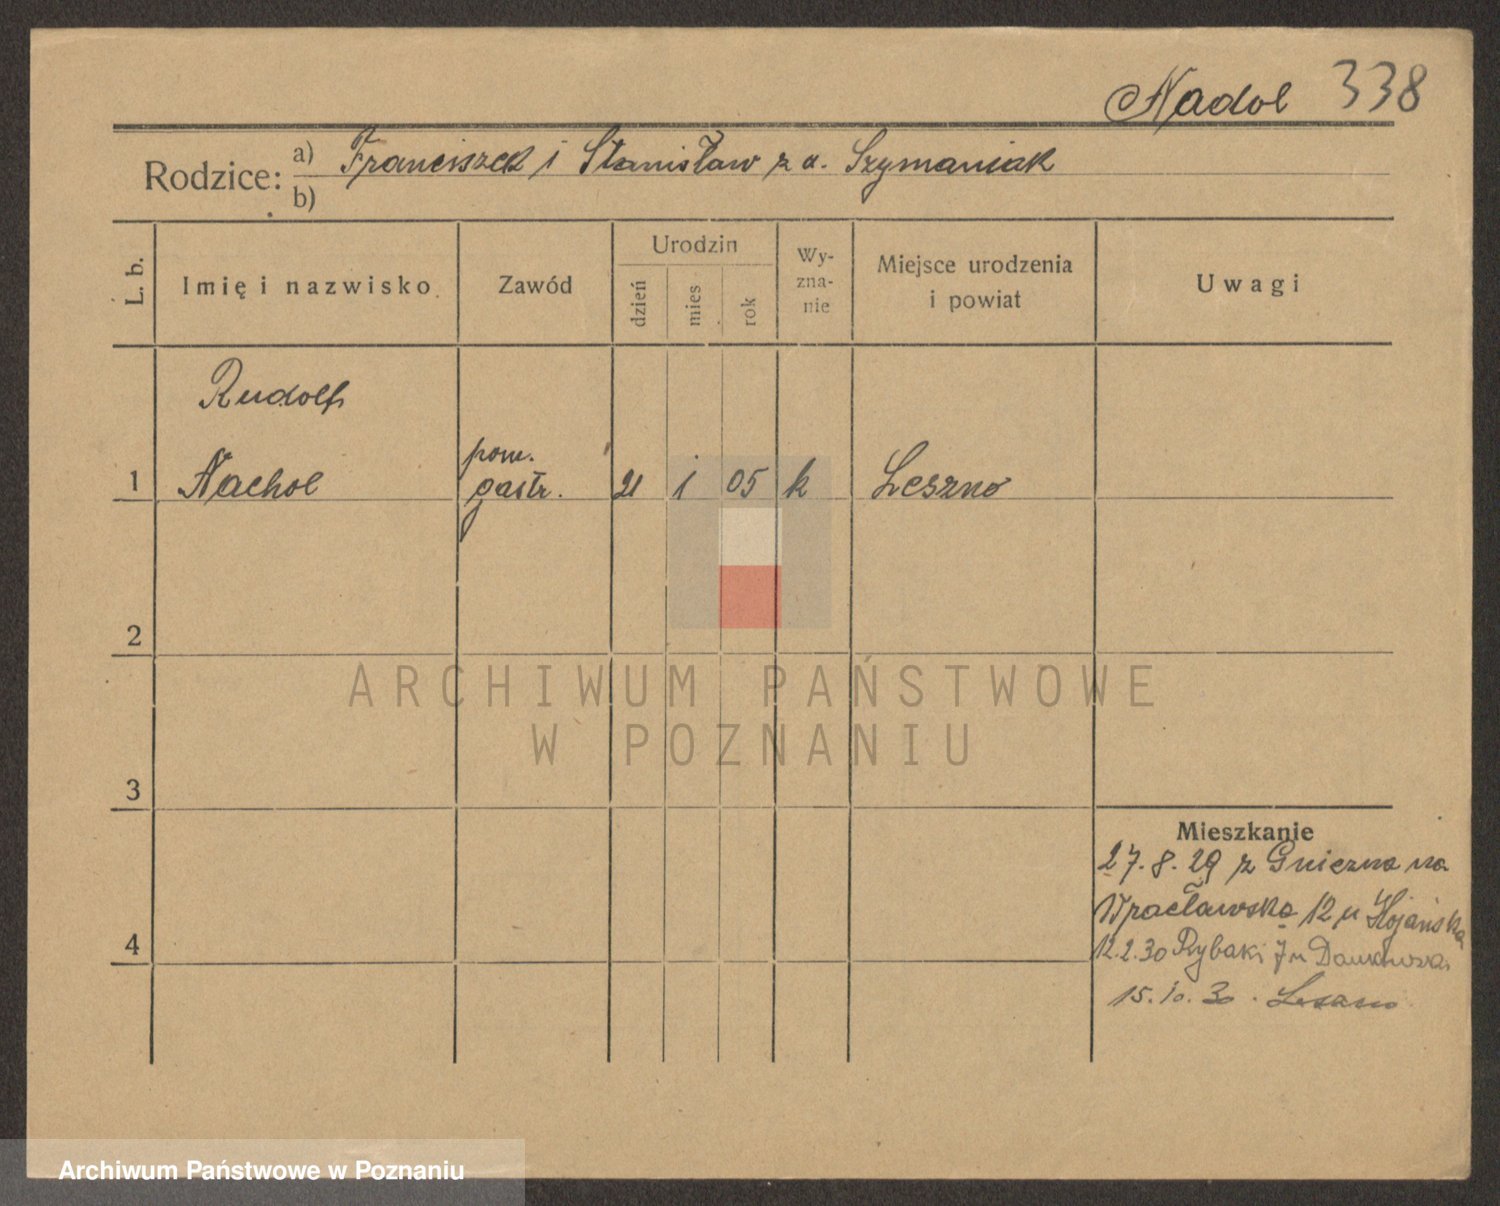 Nadol 338
Rodzice: a) Franciszek i Stanisław z d. Szymaniak
b)
L. b. Imię i nazwisko Zawód Urodzin dzień mies rok Wy-zna-nie Miejsce urodzenia i powiat Uwagi
Rudolf
pom.
1 Nachol gastr. 21 1 05 k Leszno
2
ARCHIWUM PAŃSTWOWE
W POZNANIU
3
Mieszkanie
27.8.29 z Gniezna na
Wrocławska 12 u
4 12.2.30 Rybaki 7 u
15.10.30. Leszno
Archiwum Państwowe w Poznaniu